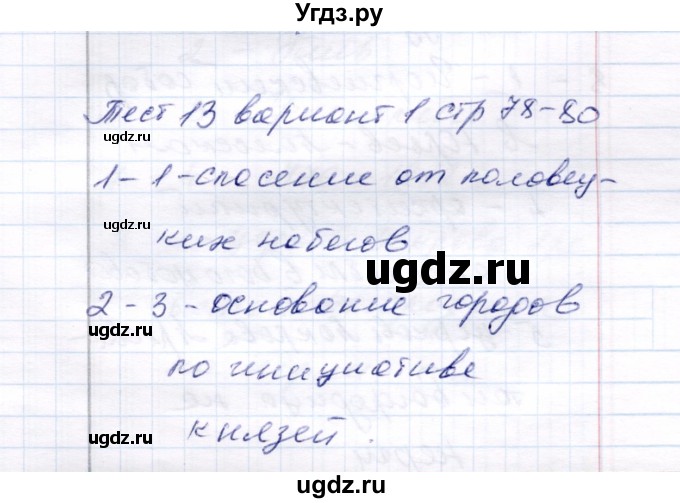 Угдз.ру
Тест 13 вариант 1 стр 78-80
ugdz.ru
1-1-спасение от половец-
ugdz.ru
ких набегов
ugdz.ru
2-3-основание городов
ugdz.ru
по инициативе
князей.
ugdz.ru
Угдз.ру